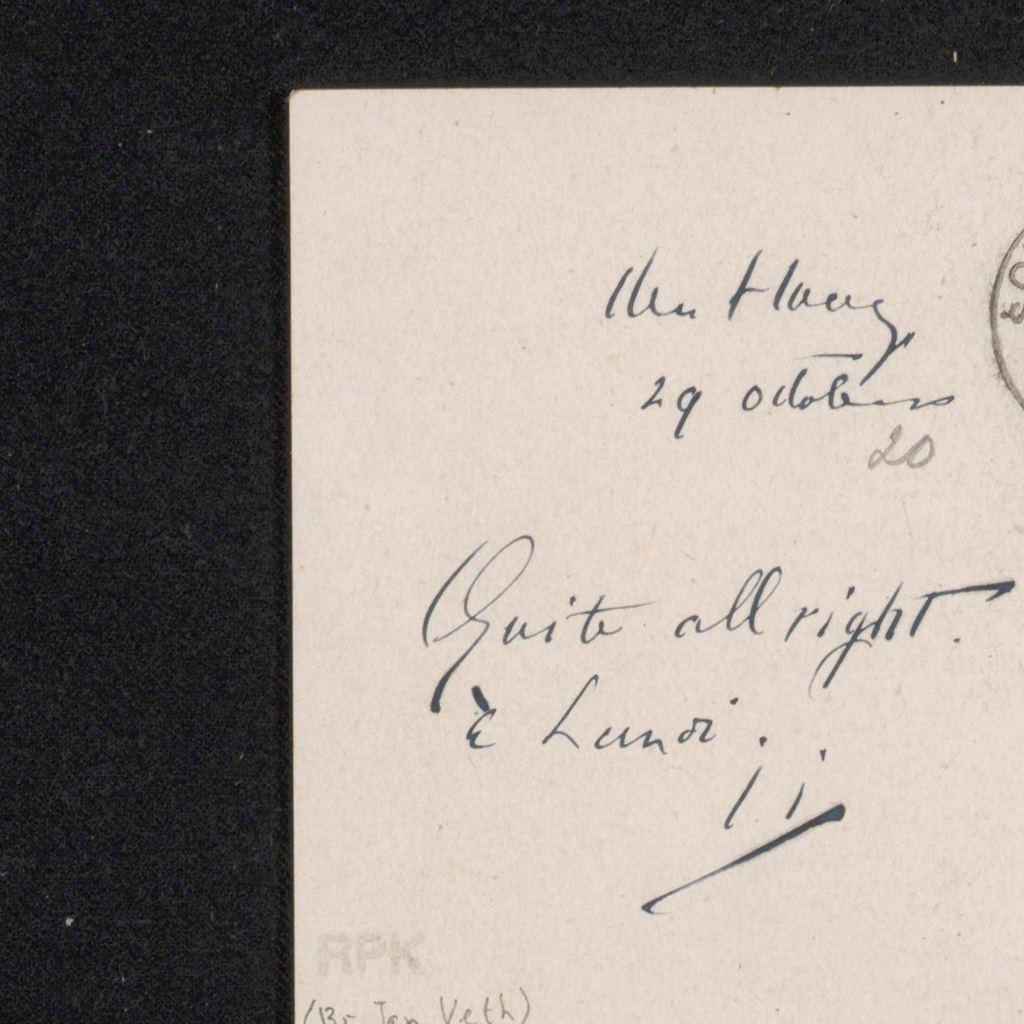 Den Haag
29 October
20
Quite all right.
à Lundi.
RPK
(Br Jan Veth)